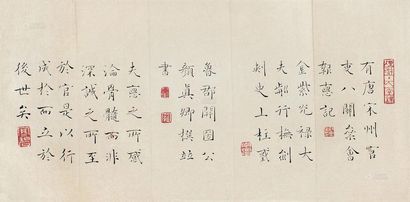 有唐宋州官
吏八關齋會
報德記
金紫光祿大
夫行撫州
刺史上柱國
魯郡開國公
顏真卿撰並
書
夫德之所感
淪骨髓而非
深誠之所至
於官是以行
成於而立於
後世矣